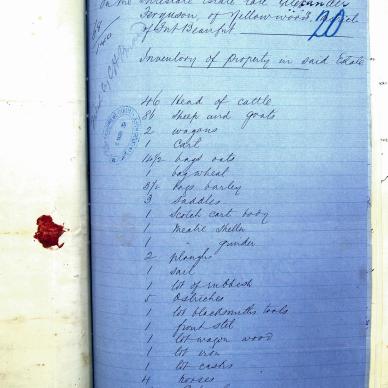 In the Insolvent Estate late Alexander
Ferguson, of Yellowwood,
of Fort Beaufort
20
Inventory of Property in said Estate
46 Head of cattle
86 Sheep and goats
2 wagons
1 Cart
14½ bags oats
1 bag wheat
3½ bags barley
3 Saddles
1 Scotch cart body
1 Mealie Sheller
1 " grinder
2 ploughs
1 sail
1 lot of rubbish
5 Ostriches
1 lot blacksmiths tools
1 front
1 lot wagon wood
1 lot iron
1 lot casks
4 horses